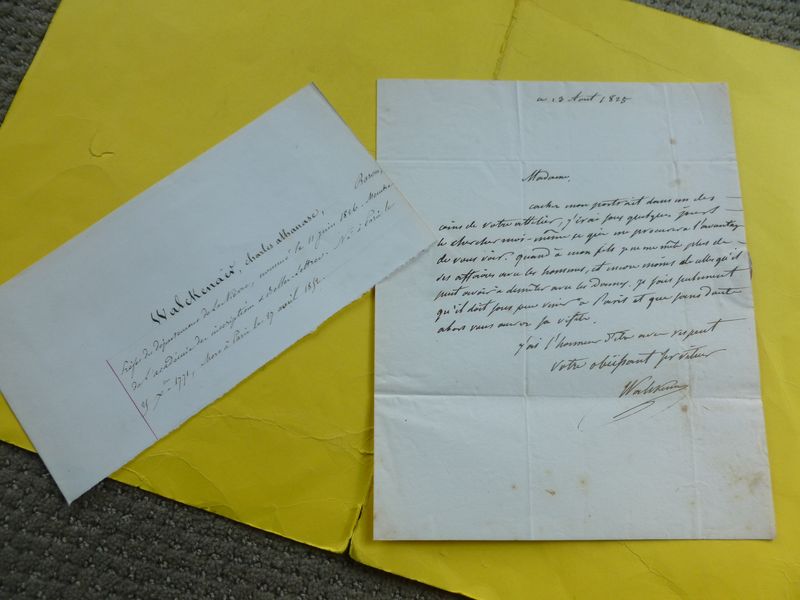 Walckenaër, Charles athanase, Baron,
Préfet du département de la Nièvre, nommé le 11 juin 1826. Membre
de l'académie des inscriptions & Belles-Lettres. Né à Paris le
25 Xbre 1771, Mort à Paris le 27 avril 1852.
ce 13 Août 1825
Madame,
cachez mon portrait dans un des
coins de votre attelier, j'irai sous quelques jours
le chercher moi-même ce qui me procurera l'avantage
de vous voir. quand à mon fils je ne me mêle plus de
ses affaires avec les hommes, et encore moins de celles qu'il
peut avoir à demêler avec les Dames, je sais seulement
qu'il doit sous peu venir à Paris et que sans doute
alors vous aurez sa visite.
j'ai l'honneur d'être avec respect
votre obéissant serviteur
Walckenaer